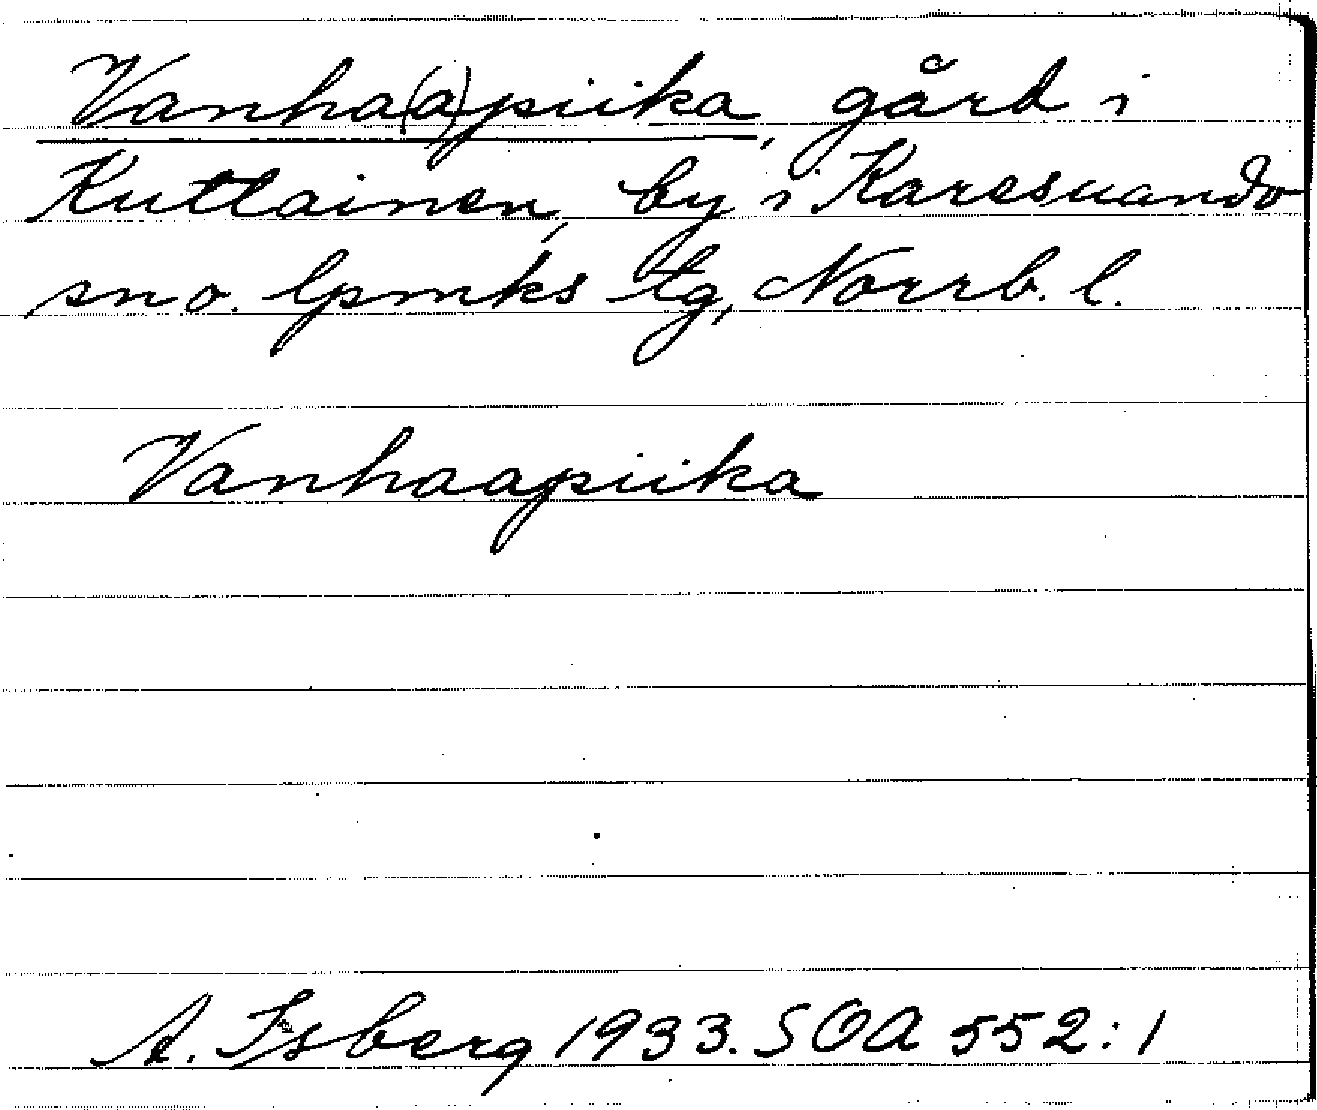 Vanha(a)piika, gård i
Kuttainen, by i Karesuando
sn o. lpmks tg, Norrb. l.
Vanhaapiika
A. Isberg 1933. SOA 552:1